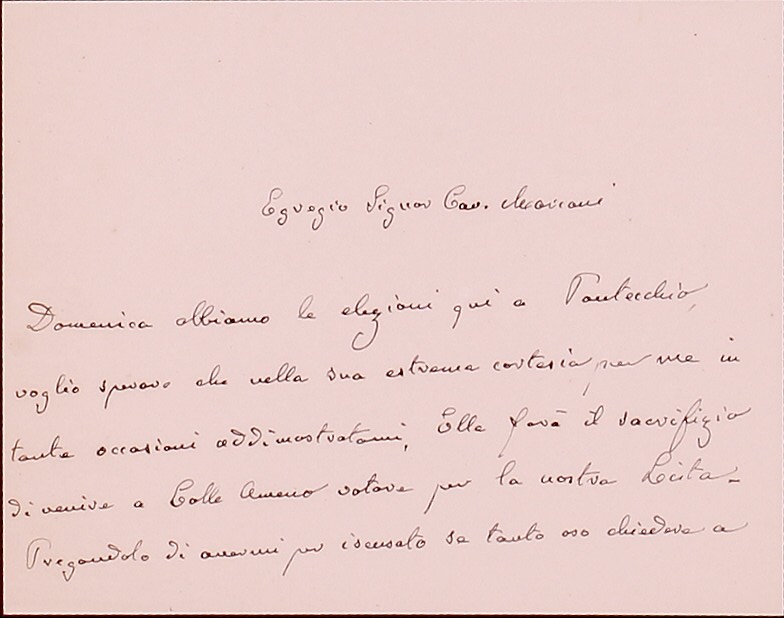 Egregio Signor Cav. Marconi
Domenica abbiamo le elezioni qui a Pontecchio,
voglio sperare che nella sua estrema cortesia per me in
tante occasioni addimostratami, Ella farà il sacrifizio
di venire a Colle Ameno votare per la nostra Lista_
Pregandolo di avermi per iscusato se tanto oso chiedere a